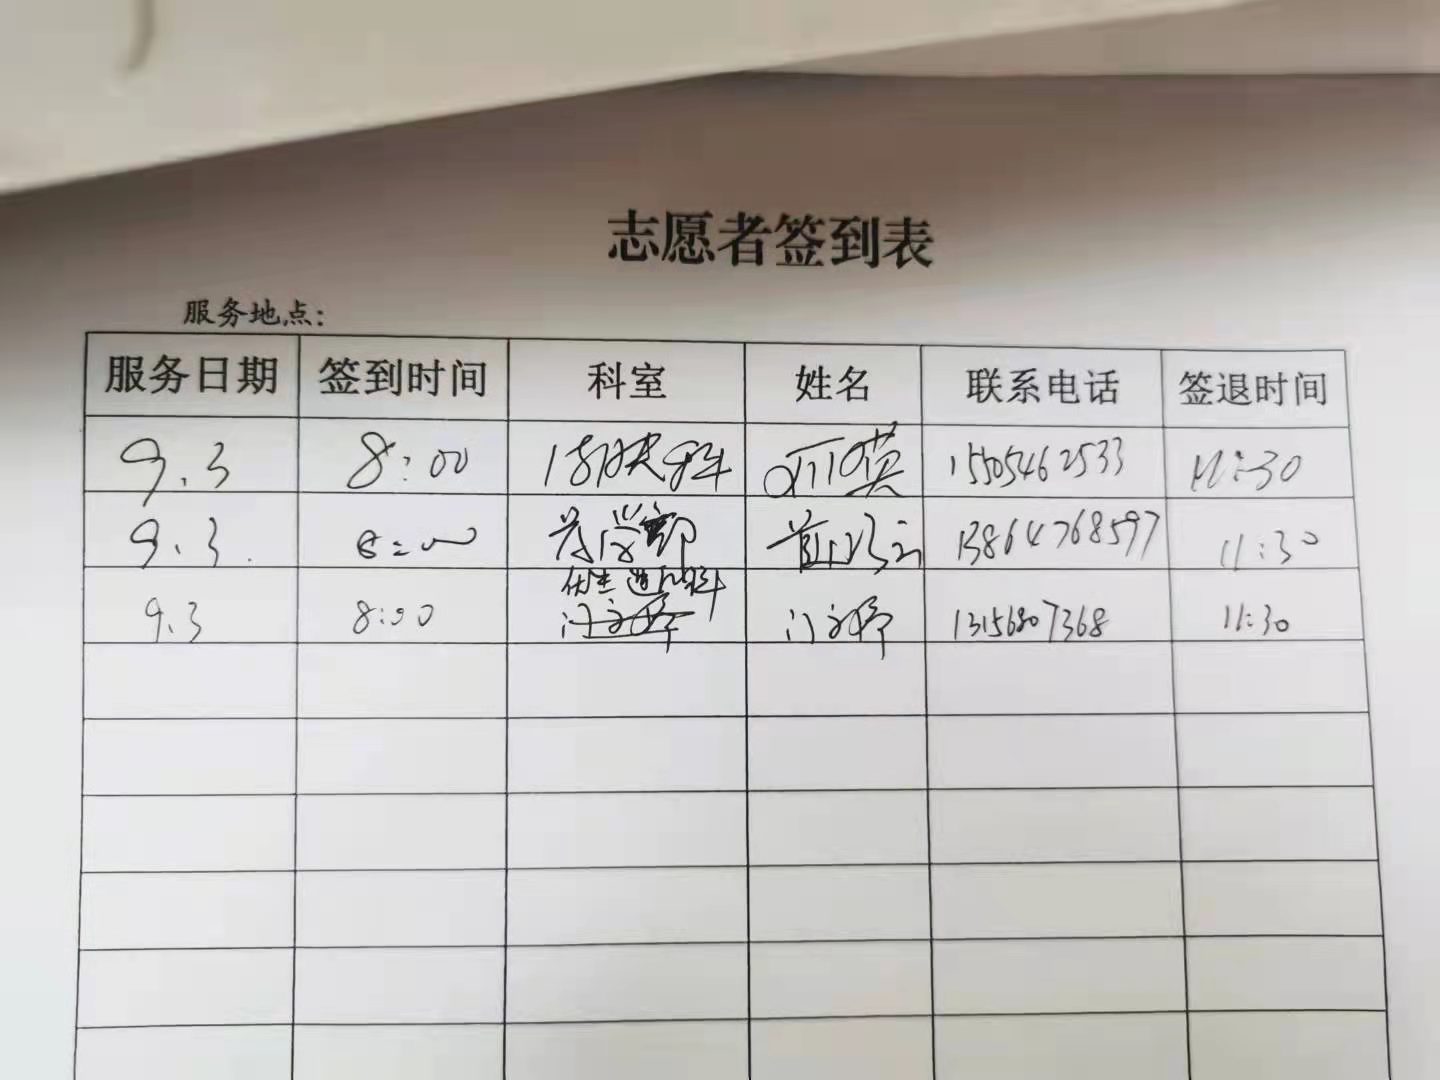 志愿者签到表
服务地点:
服务日期 签到时间 科室 姓名 联系电话 签退时间
9.3 8:00 科 英 15505462533 11:30
9.3. 8:00 部 13864768597 11:30
优生遗传科
9.3 8:00 门文婷 门文婷 13156807368 11:30